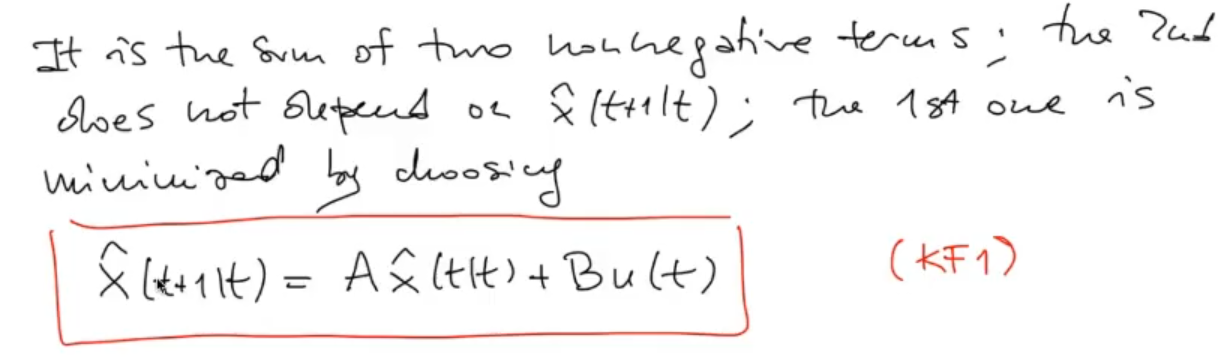 It is the sum of two nonnegative terms; the 2nd
does not depend on x̂(t+1|t); the 1st one is
minimized by choosing
x̂(t+1|t) = A x̂(t|t) + B u(t) (KF1)